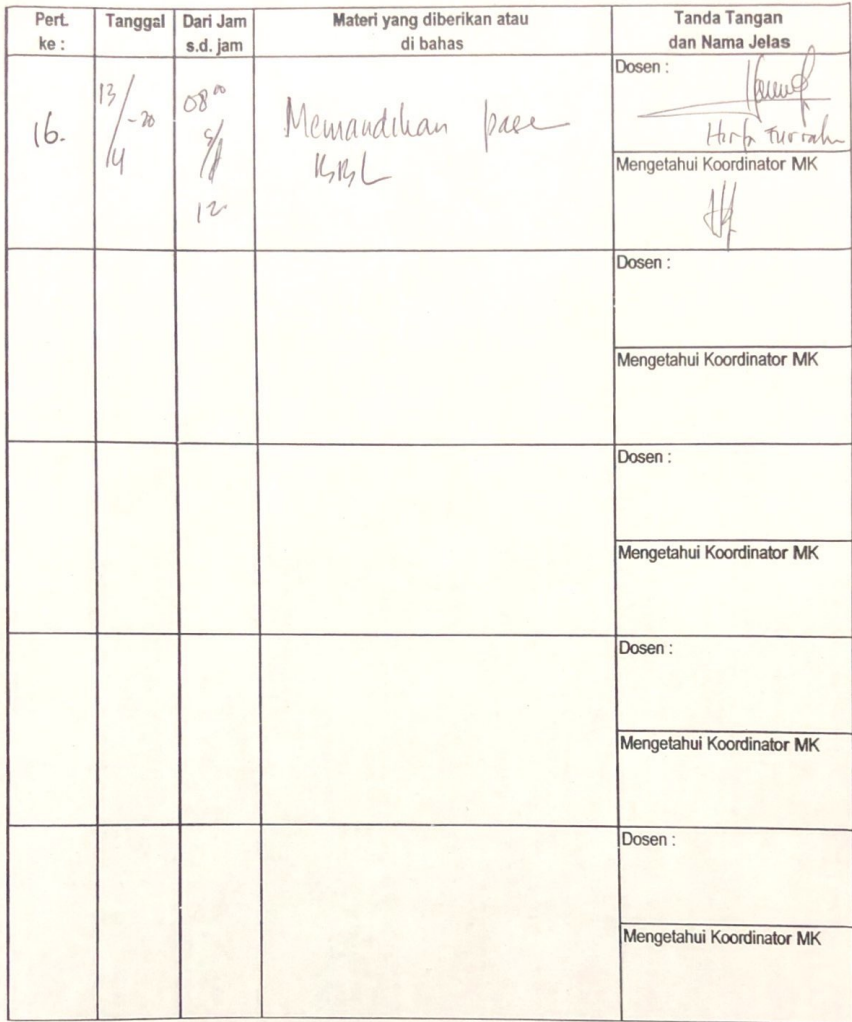 Pert. ke :
Tanggal
Dari Jam s.d. jam
Materi yang diberikan atau di bahas
Tanda Tangan dan Nama Jelas
16.
13/4 -20
08⁰⁰
s/d
12
Memandikan
BBL
Dosen :
Mengetahui Koordinator MK
Dosen :
Mengetahui Koordinator MK
Dosen :
Mengetahui Koordinator MK
Dosen :
Mengetahui Koordinator MK
Dosen :
Mengetahui Koordinator MK